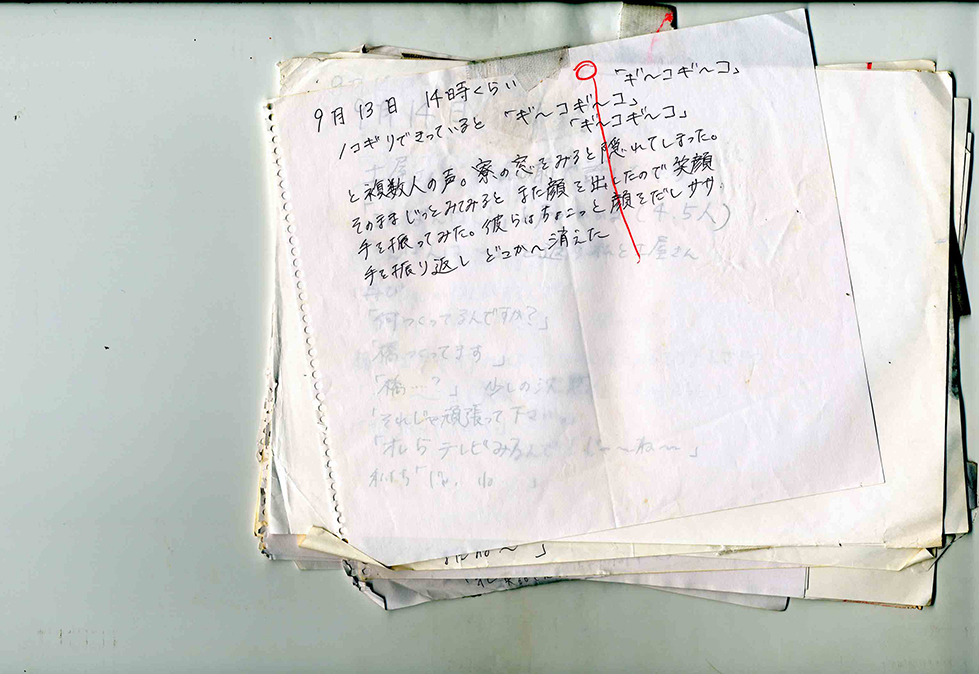 9月13日 14時くらい
「ギ〜コギ〜コ」
ノコギリできっていると 「ギ〜コギ〜コ」
「ギ〜コギ〜コ」
と複数人の声。寮の窓をみると隠れてしまった。
そのままじっとみてみると また顔を出したので笑顔
手を振ってみた。彼らはちょこっと顔をだしササ
手を振り返し どこかへ消えた
(4,5人)
屋さん
「何つくってるんですか?」
「橋つくってます」
「橋…?」 少しの沈黙
「それじゃ頑張って下さい
「オレらテレビみるんで じゃ〜ね〜」
私たち「じゃ、